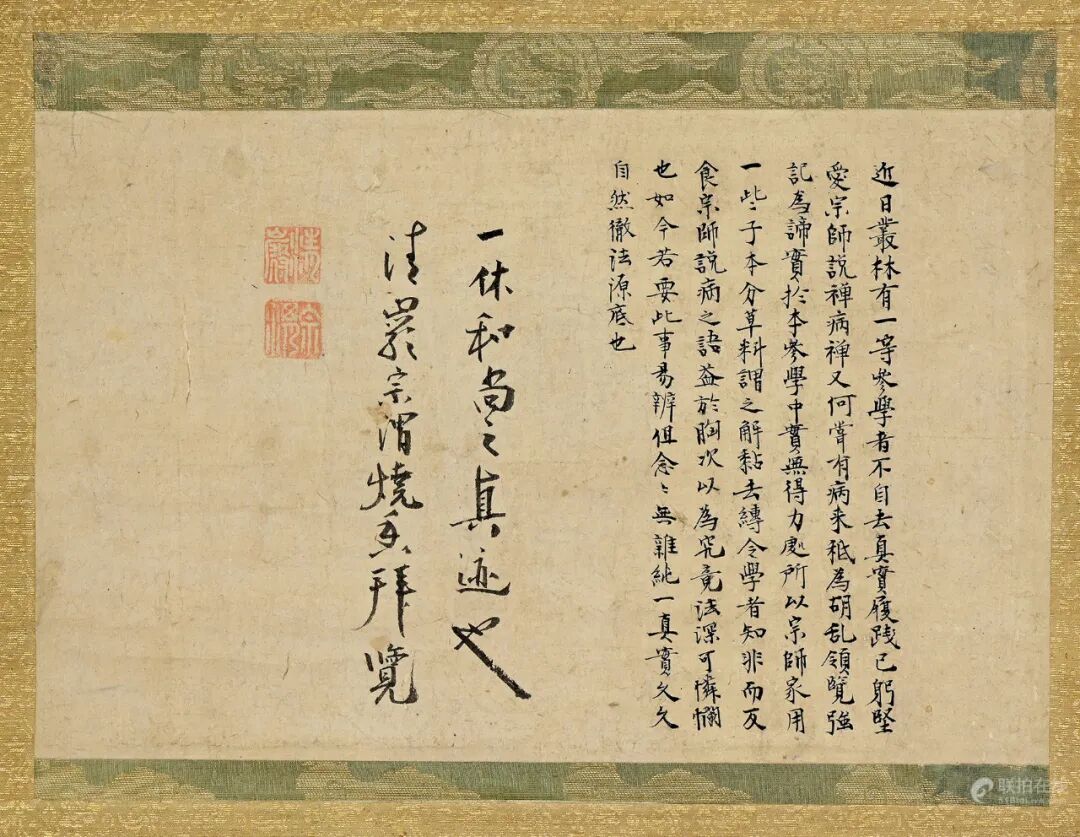 近日叢林有一等參學者不自去真實履踐已躬堅
愛宗師說禪病禪又何嘗有病来秖為胡乱領覽強
記為諦實於本參學中實無得力處所以宗師家用
一些子本分草料謂之解黏去縛令學者知非而反
食宗師說病之語蓋於胸次以為究竟法深可憐憫
也如今若要此事易辨但念〻無雜純一真實久久
自然徹法源底也
一休和尚之真迹也
清巖宗渭燒香拜覽
清巖
宗渭
联拍在线